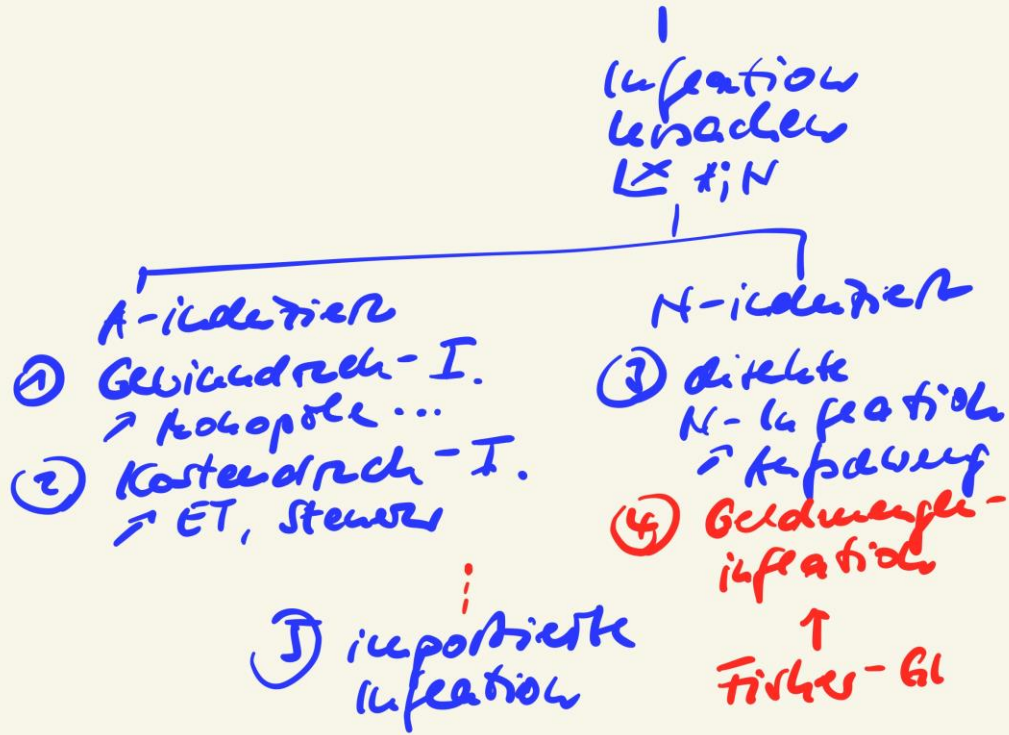 Inflation
Ursachen
A; N
A-indiziert
① Gewinndruck-I.
↗ Monopole ...
② Kostendruck-I.
↗ ET, Steuern
N-indiziert
③ direkte
N-Inflation
↗ Aufschwung
④ Geldmengen-
inflation
↑
Fisher-Gl
⑤ importierte
Inflation